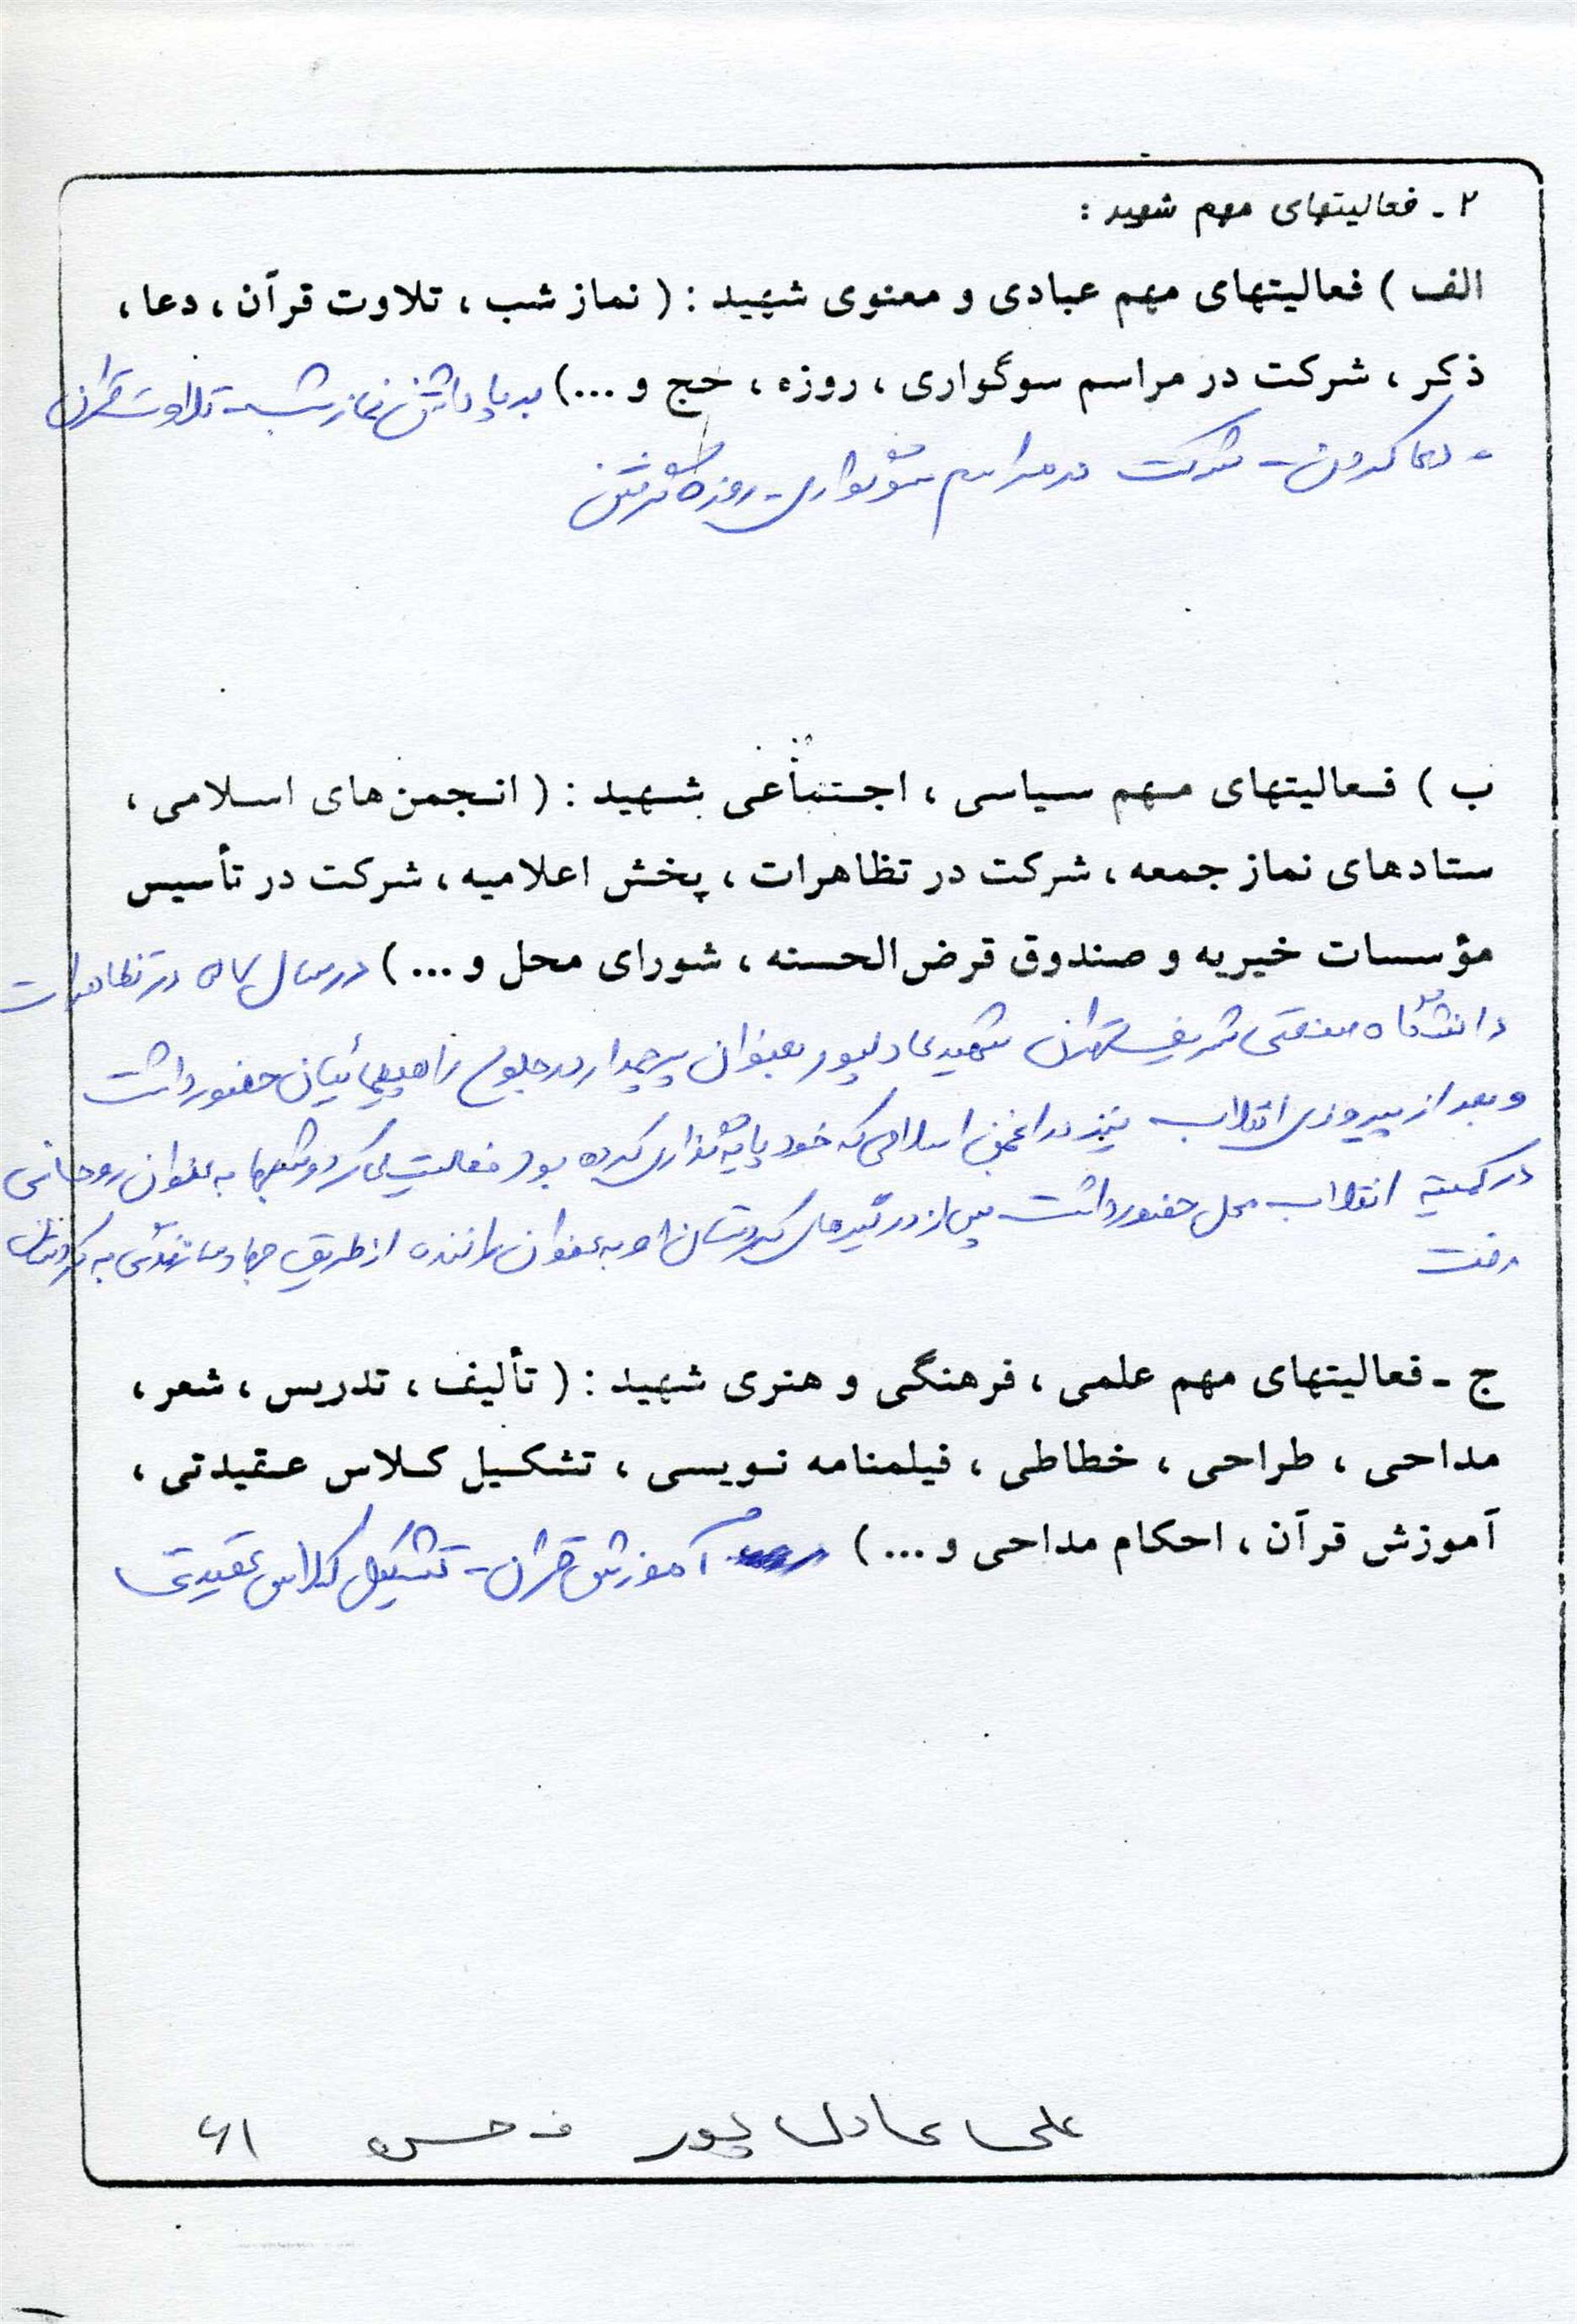 ۲ - فعالیتهای مهم شهید :
الف ) فعالیتهای مهم عبادی و معنوی شهید : ( نماز شب ، تلاوت قرآن ، دعا ،
ذکر ، شرکت در مراسم سوگواری ، روزه ، حج و ...) برپا داشتن نماز شب - تلاوت قرآن
- دعا کردن - شرکت در مراسم سوگواری - روزه گرفتن
ب ) فعالیتهای مهم سیاسی ، اجتماعی شهید : ( انجمن‌های اسلامی ،
ستادهای نماز جمعه ، شرکت در تظاهرات ، پخش اعلامیه ، شرکت در تأسیس
مؤسسات خیریه و صندوق قرض‌الحسنه ، شورای محل و ... ) در سال ۵۷ در تظاهرات
دانشگاه صنعتی شریف تهران شهید عادلپور بعنوان پرچمدار در جلوی راهپیمائیان حضور داشت
و بعد از پیروزی انقلاب نیز در انجمن اسلامی که خود پایه گذاری کرده بود فعالیت می‌کرد و شبها به عنوان
در کمیته انقلاب محل حضور داشت پس از درگیرهای کردستان او به عنوان راننده از طریق جهاد سازندگی به کردستان
رفت
ج - فعالیتهای مهم علمی ، فرهنگی و هنری شهید : ( تألیف ، تدریس ، شعر ،
مداحی ، طراحی ، خطاطی ، فیلمنامه نویسی ، تشکیل کلاس عقیدتی ،
آموزش قرآن ، احکام مداحی و ... ) آموزش قرآن - تشکیل کلاس عقیدتی
علی عادل پور ف حسن ۶۱